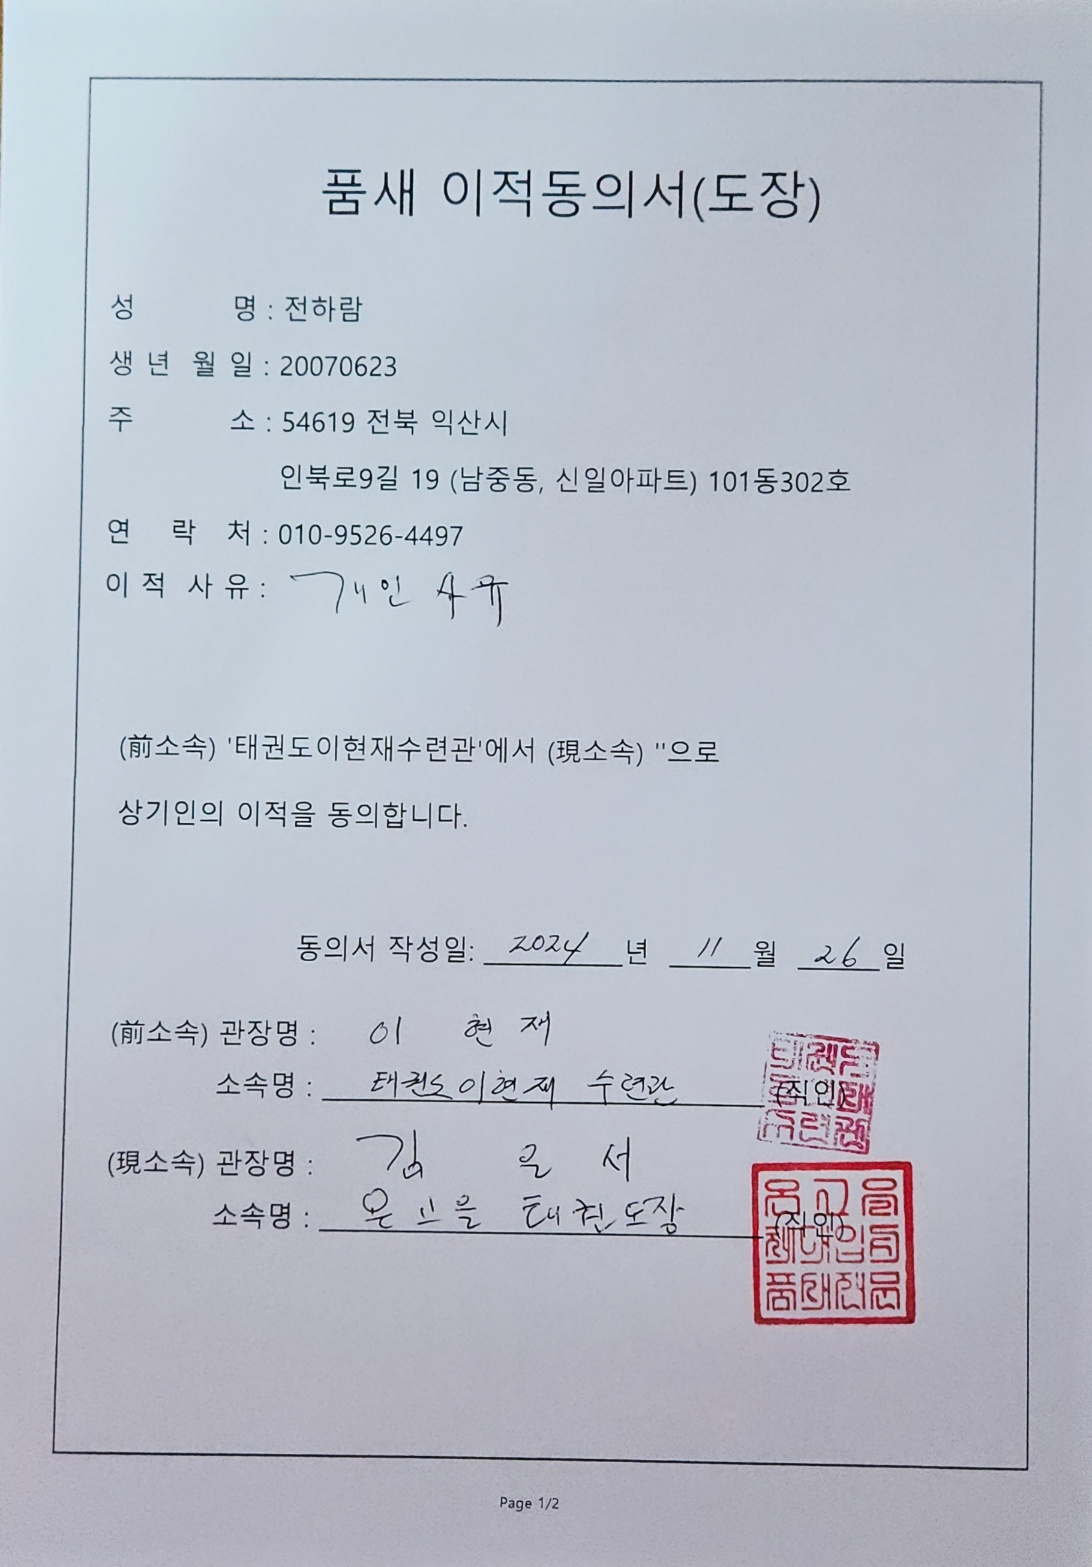 품새 이적동의서(도장)
성 명 : 전하람
생 년 월 일 : 20070623
주 소 : 54619 전북 익산시
인북로9길 19 (남중동, 신일아파트) 101동302호
연 락 처 : 010-9526-4497
이 적 사 유 : 개인 사유
(前소속) '태권도이현재수련관'에서 (現소속) ''으로
상기인의 이적을 동의합니다.
동의서 작성일: 2024 년 11 월 26 일
(前소속) 관장명 : 이 현 재
소속명 : 태권도이현재 수련관 (직인)
(現소속) 관장명 : 김 은 서
소속명 : 온고을 태권도장 (직인)
Page 1/2